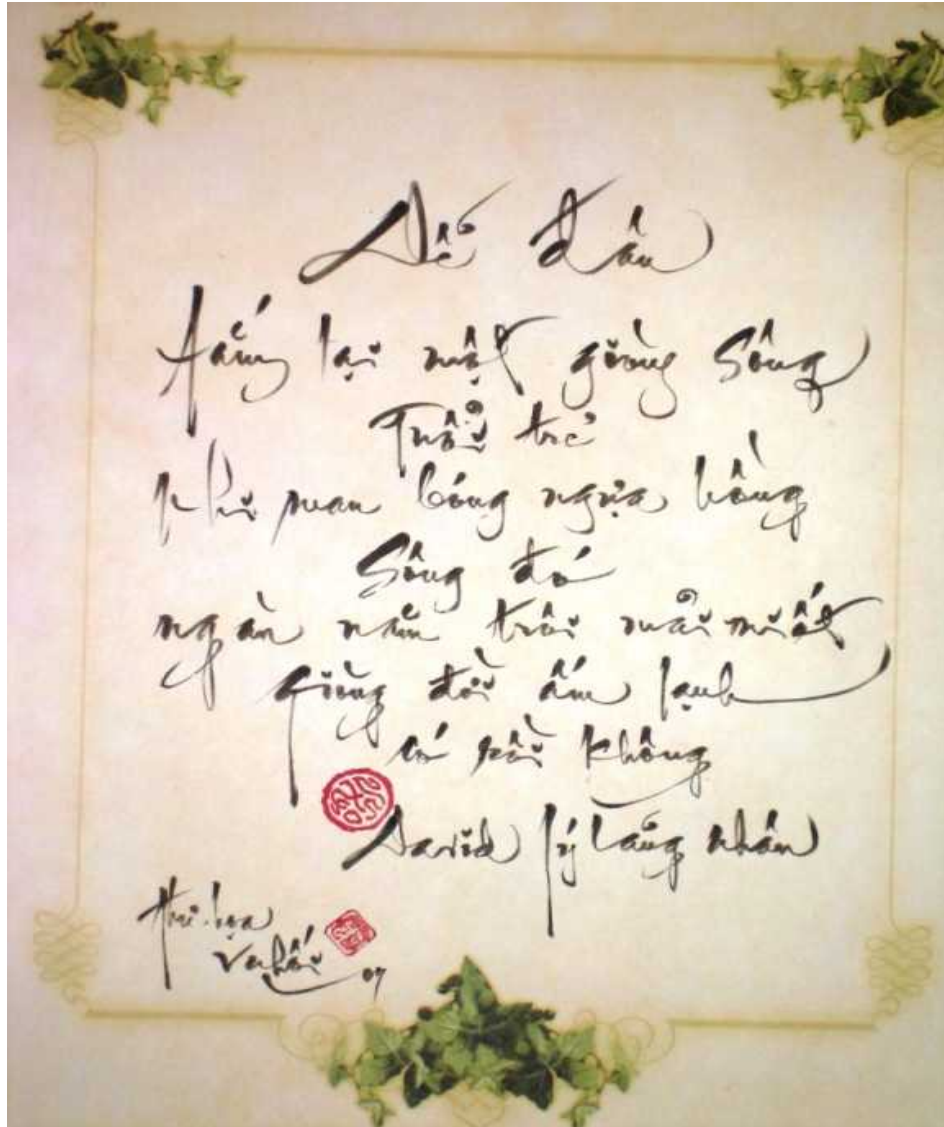 Dễ đâu
tắm lại một giòng sông
Tuổi trẻ
phi mau bóng ngựa hồng
Sông đó
ngàn năm trôi mải miết
giòng đời ấm lạnh
có rồi không
David lý lãng nhân
thư họa
Vũ Hối 07